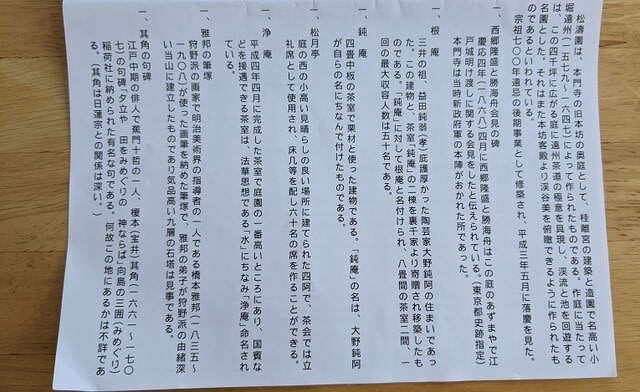 松濤園は、本門寺の旧本坊の奥庭として、桂離宮の建築と造園で名高い小
堀遠州(一五七九〜一六四七)によって作られたものである。作庭に当たって
は、この四千坪に広がる庭に遠州茶道の極意を具現し、渓流と池を回遊する
名園とした。それはまた本坊客殿より渓谷美を俯瞰できるように作られたも
のであるといわれている。
宗祖七〇〇年遠忌の後期事業として修築され、平成三年五月に落慶を見た。
一、西郷隆盛と勝海舟会見の碑
慶応四年(一八六八)四月に西郷隆盛と勝海舟はこの庭のあずまやで江
戸城明け渡しに関する会見をしたと伝えられている。(東京都史跡指定)
本門寺は当時新政府軍の本陣がおかれた所であった。
一、根庵
三井の祖、益田鈍翁(孝)庇護厚かった陶芸家大野鈍阿の住まいであっ
た。この建物と、茶室「鈍庵」の二棟を裏千家より寄贈され移築したも
のである。「鈍庵」に対して根庵と名付けられ、八畳間の茶室二間、一
回の最大収容人数は五十名である。
一、鈍庵
四畳中板の茶室で栗材と使った建物である。「鈍庵」の名は、大野鈍阿
が自らの名にちなんで付けたものである。
一、松月亭
庭の西の小高い見晴らしの良い場所に建てられた四阿で、茶会では立
礼席として使用され、床几等を配し六十名の席を作ることができる。
一、浄庵
平成四年四月に完成した茶室で庭園の一番高いところにあり、国賓な
どを接遇できる茶室は、法華思想である「水」にちなみ「浄庵」命名され
ている。
一、雅邦の筆塚
狩野派の画家で明治美術界の指導者の一人である橋本雅邦(一八三五〜
一九〇八)が使った画筆を納めた筆塚で、雅邦の弟子が狩野派の由緒深
い当山に建立したものであり気品高い九層の石塔は見事である。
一、其角の句碑
江戸中期の俳人で蕉門十哲の一人、榎本(宝井)其角(一六六一〜一七〇
七)の句碑「夕立や 田をみめぐりの 神ならば」向島の三囲(みめぐり)
稲荷社に納められた有名な句である。何故この地にあるかは不詳であ
る。(其角は日蓮宗との関係は深い。)